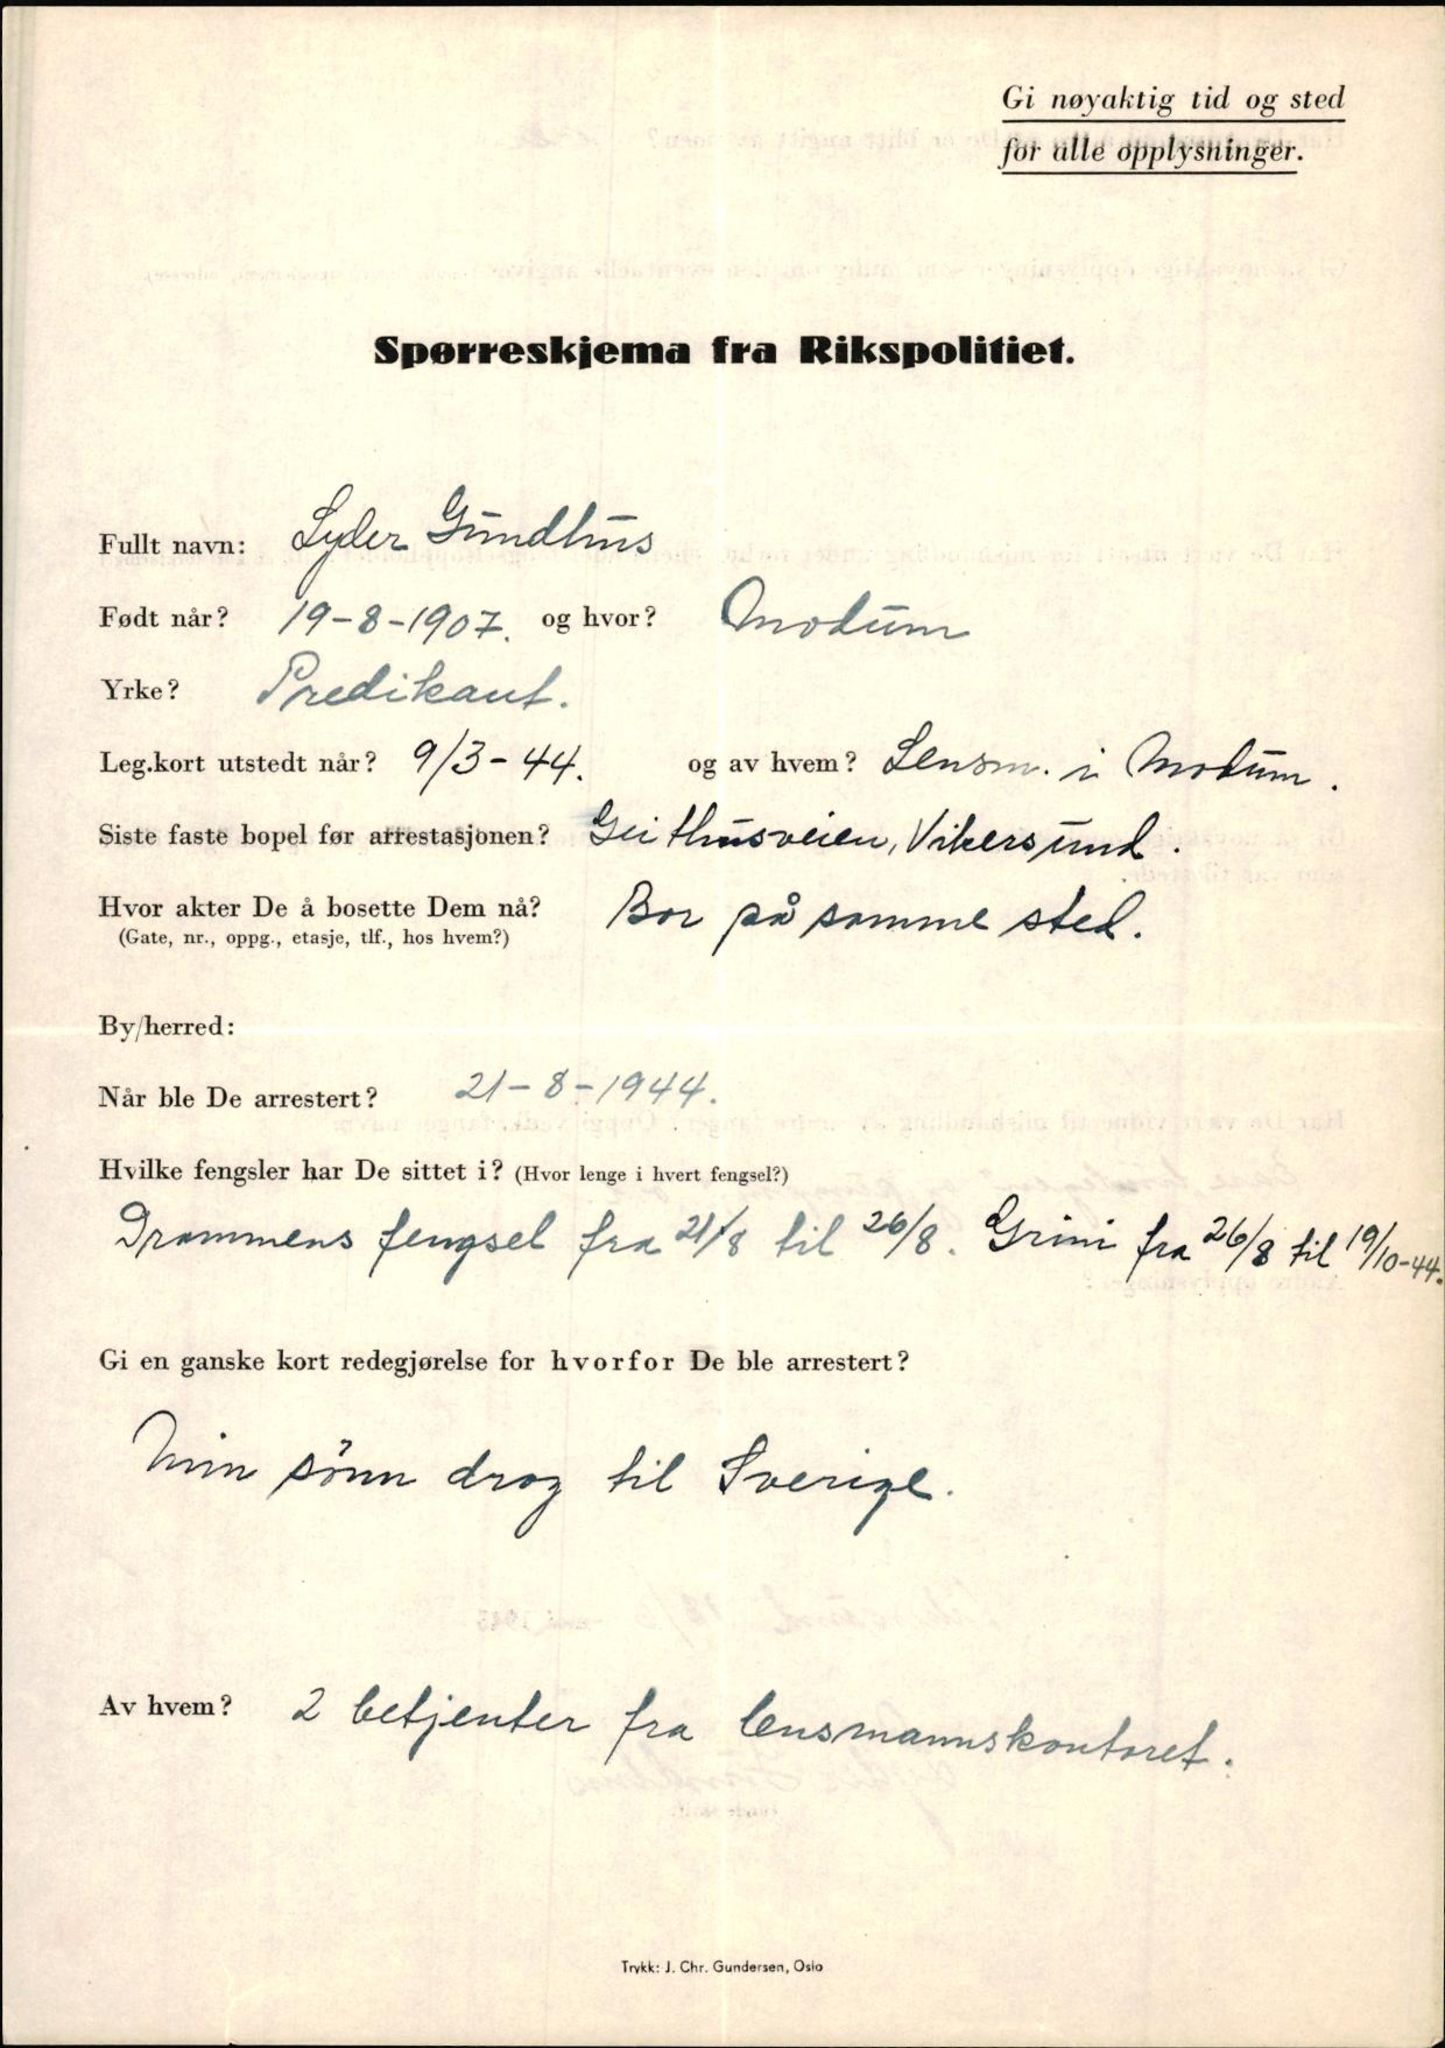 Gi nøyaktig tid og sted
for alle opplysninger.
Spørreskjema fra Rikspolitiet.
Fullt navn: Lyder Gundhus
Født når? 19-8-1907. og hvor? Modum
Yrke? Predikant.
Leg.kort utstedt når? 9/3-44. og av hvem? Lensm. i Modum.
Siste faste bopel før arrestasjonen? Geithusveien, Vikersund.
Hvor akter De å bosette Dem nå? Bor på samme sted.
(Gate, nr., oppg., etasje, tlf., hos hvem?)
By/herred:
Når ble De arrestert? 21-8-1944.
Hvilke fengsler har De sittet i? (Hvor lenge i hvert fengsel?)
Drammens fengsel fra 21/8 til 26/8. Grini fra 26/8 til 19/10-44.
Gi en ganske kort redegjørelse for hvorfor De ble arrestert?
Min sönn drog til Sverige.
Av hvem? 2 betjenter fra lensmannskontoret.
Trykk: J. Chr. Gundersen, Oslo